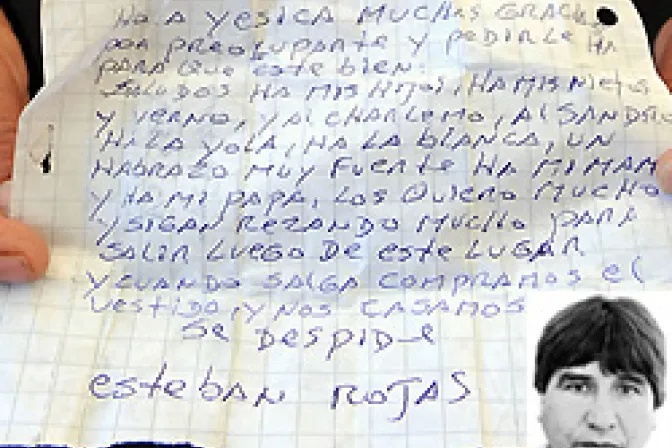 HOLA YESICA MUCHAS GRACI
POR PREOCUPARTE Y PEDIRLE HA
PARA QUE ESTE BIEN.
SALUDOS HA MIS HIJOS, HA MIS NIETOS
Y YERNO, Y AL CHARLEMO, AL SANDRO
HA LA YOLA, HA LA BLANCA, UN
HABRAZO MUY FUERTE HA MI MAM
Y HA MI PAPA, LOS QUIERO MUCHO
Y SIGAN REZANDO MUCHO PARA
SALIR LUEGO DE ESTE LUGAR
Y CUANDO SALGA COMPRAMOS EL
VESTIDO, Y NOS CASAMOS
SE DESPIDE
ESTEBAN ROJAS